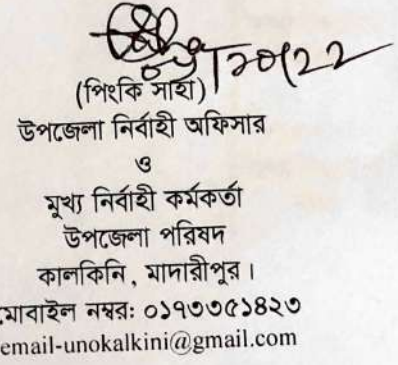 (পিংকি সাহা)
উপজেলা নির্বাহী অফিসার
ও
মুখ্য নির্বাহী কর্মকর্তা
উপজেলা পরিষদ
কালকিনি, মাদারীপুর।
মোবাইল নম্বর: ০১৭৩৩৫১৪২৩
email-unokalkini@gmail.com